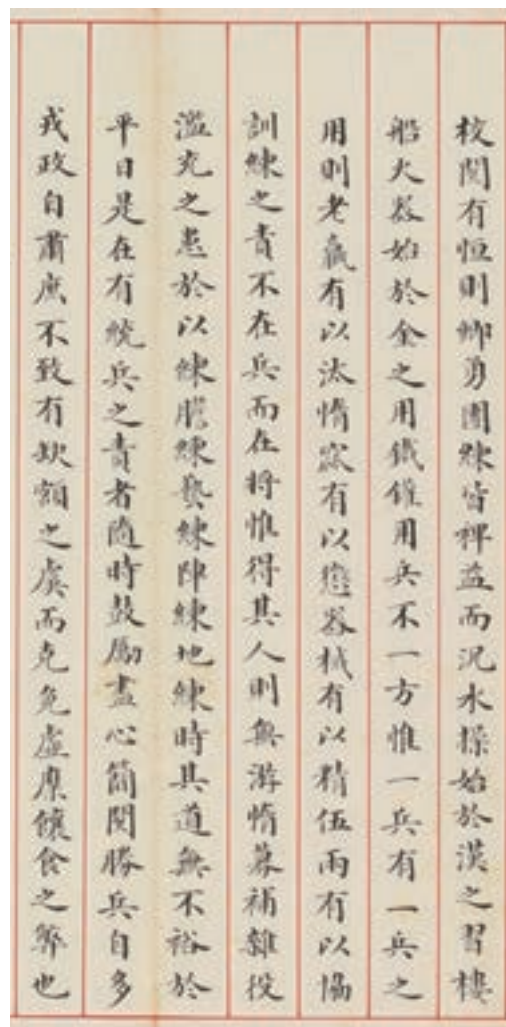 校閱有恒則鄉勇團練皆裨益而況水操始於漢之習樓
船火器始於金之用鐵鑵用兵不一方惟一兵有一兵之
用則老羸有以汰惰窳有以懲器械有以精伍兩有以協
訓練之責不在兵而在將惟得其人則無游惰募補雜役
濫充之患於以練膽練藝練陣練地練時其道無不裕於
平日是在有統兵之責者隨時鼓勵盡心簡閱勝兵自多
戎政自肅庶不致有缺額之虞而克免虛糜饟食之弊也